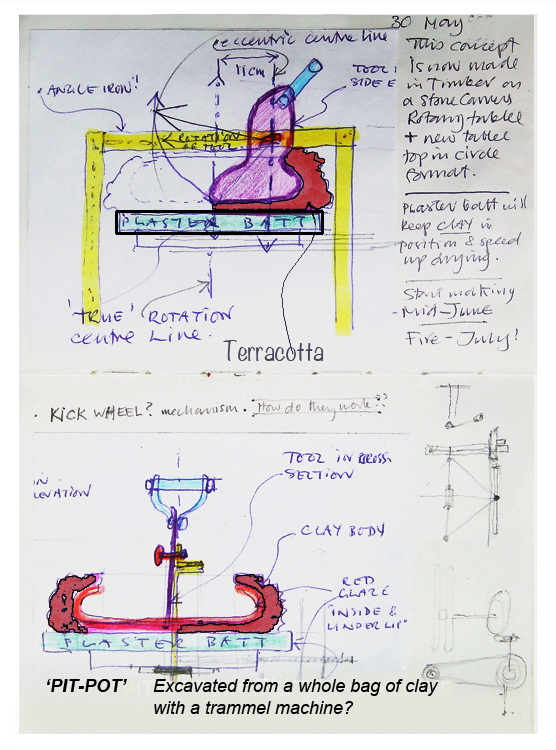 30 May
eccentric centre line
11cm
TOOL IN
SIDE E
ANGLE IRON!
ROTATION
OF TOOL
This concept
is now made
in Timber on
a Stone Carvers
Rotary table
+ new table
top in circle
format.
Plaster batt will
keep CLAY in
position & speed
up drying.
Start making
- Mid-June
Fire - July!
PLASTER BATT
'TRUE' ROTATION
centre Line.
Terracotta
. KICK WHEEL? mechanism. How do they work??
TOOL IN CROSS
SECTION
IN
ELEVATION
CLAY BODY
RED
GLAZE
"INSIDE &
UNDER LIP"
PLASTER BATT
'PIT-POT' Excavated from a whole bag of clay
with a trammel machine?